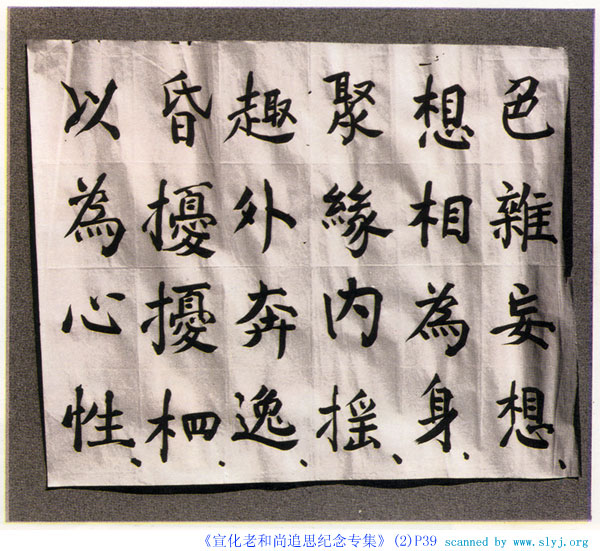 色雜妄想、
想相為身、
聚緣内搖、
趣外奔逸、
昏擾擾相、
以為心性、
《宣化老和尚追思纪念专集》(2)P39 scanned by www.slyj.org